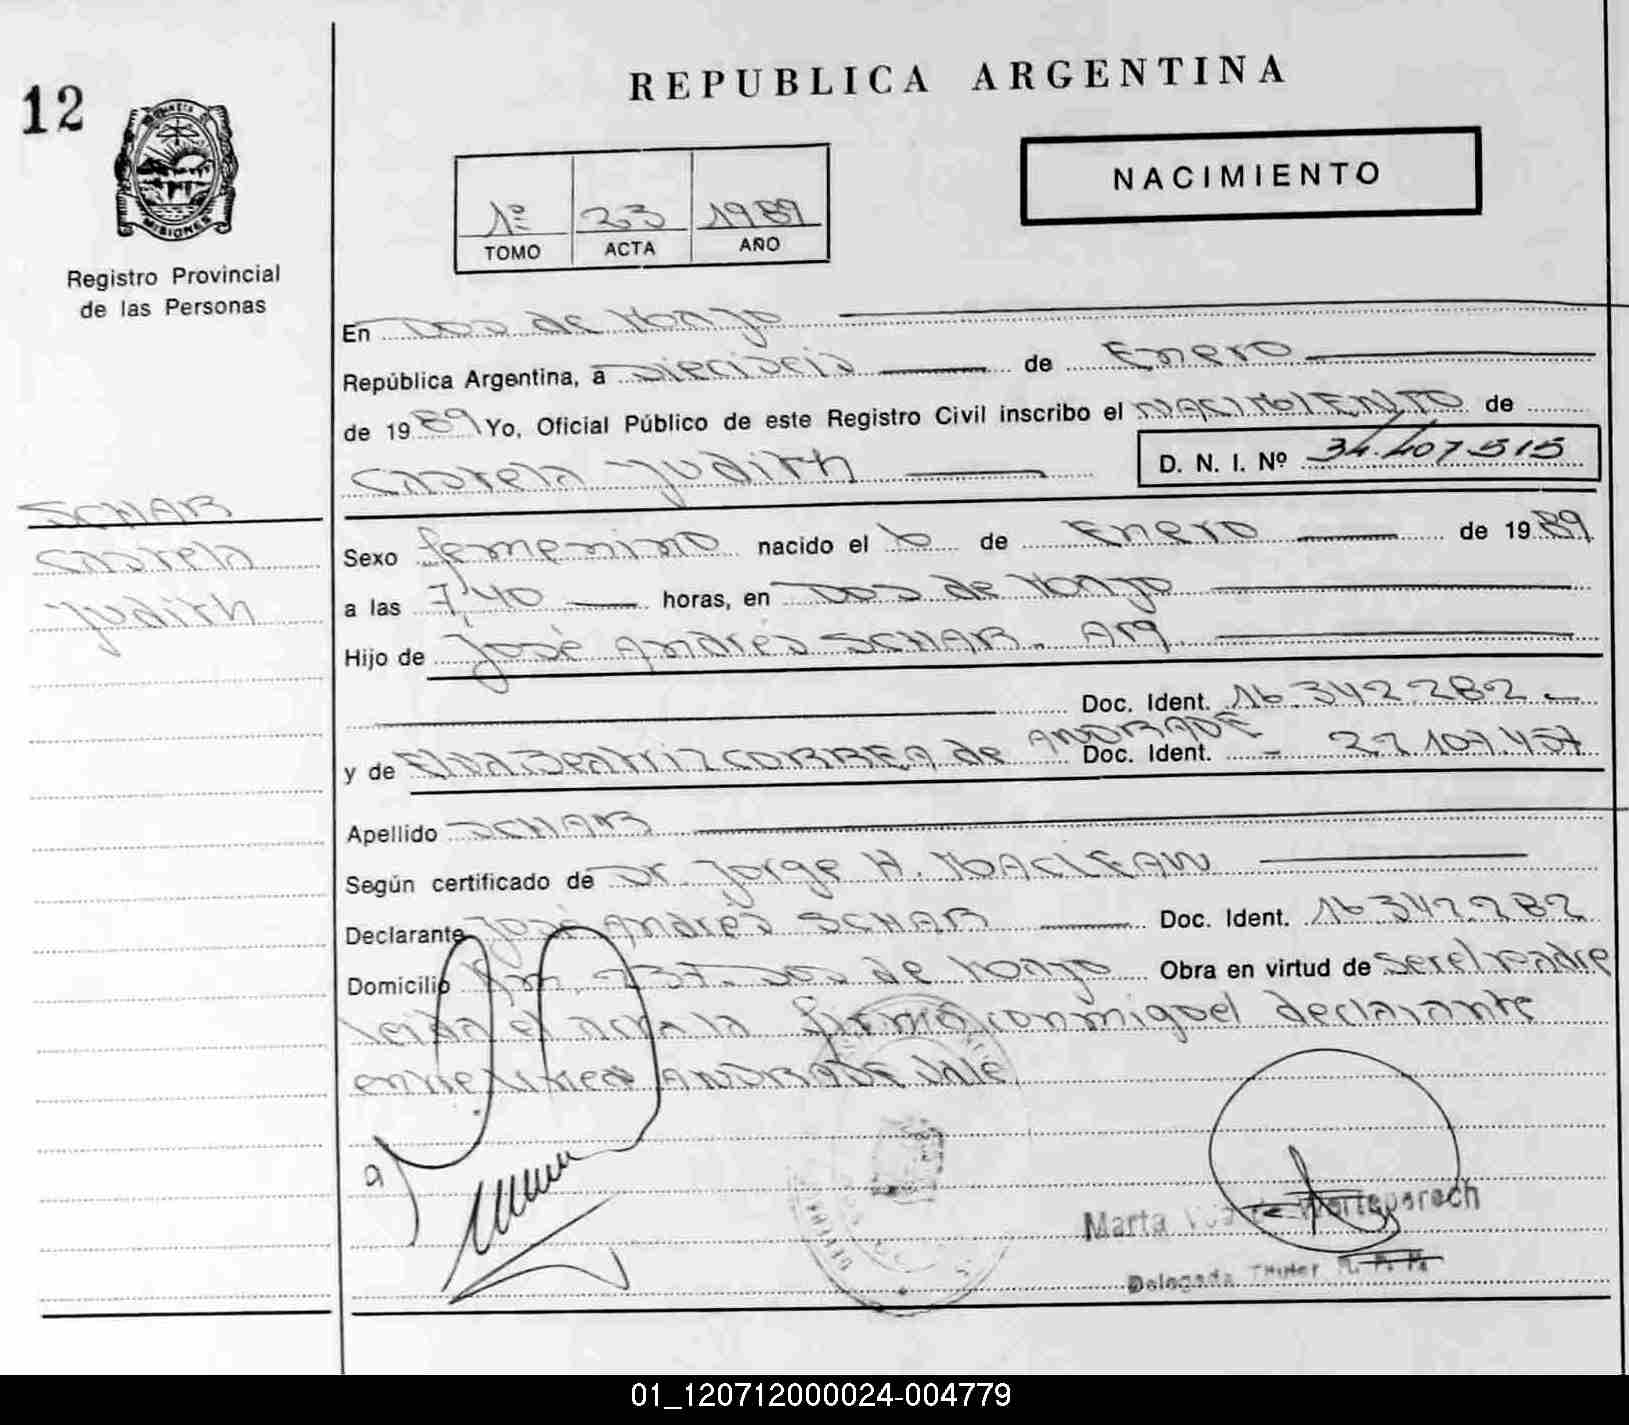 REPUBLICA ARGENTINA
12
NACIMIENTO
1º 23 1989
TOMO ACTA AÑO
MISIONES
Registro Provincial
de las Personas
En Dos de Mayo
República Argentina, a Dieciseis de Enero
de 1989 Yo, Oficial Público de este Registro Civil inscribo el NACIMIENTO de
D. N. I. Nº 34.407.515
Judith
SCHAR
Judith
Sexo femenino nacido el 6 de Enero de 1989
a las 7,40 horas, en Dos de Mayo
Hijo de José Andrés SCHAR. Arg
Doc. Ident. 16.342.282
ANDRADE
y de Beatriz CORREA de Doc. Ident. 22.107.457
Apellido SCHAR
Según certificado de Dr. Jorge H. MACLEAN
Declarante José Andrés SCHAR Doc. Ident. 16.342.282
Domicilio Km. 237 Dos de Mayo Obra en virtud de ser el padre
leida el acta la firma conmigo el declarante
ANDRADE Vale
Marta
Delegada Titular R. P. P.
01_120712000024-004779